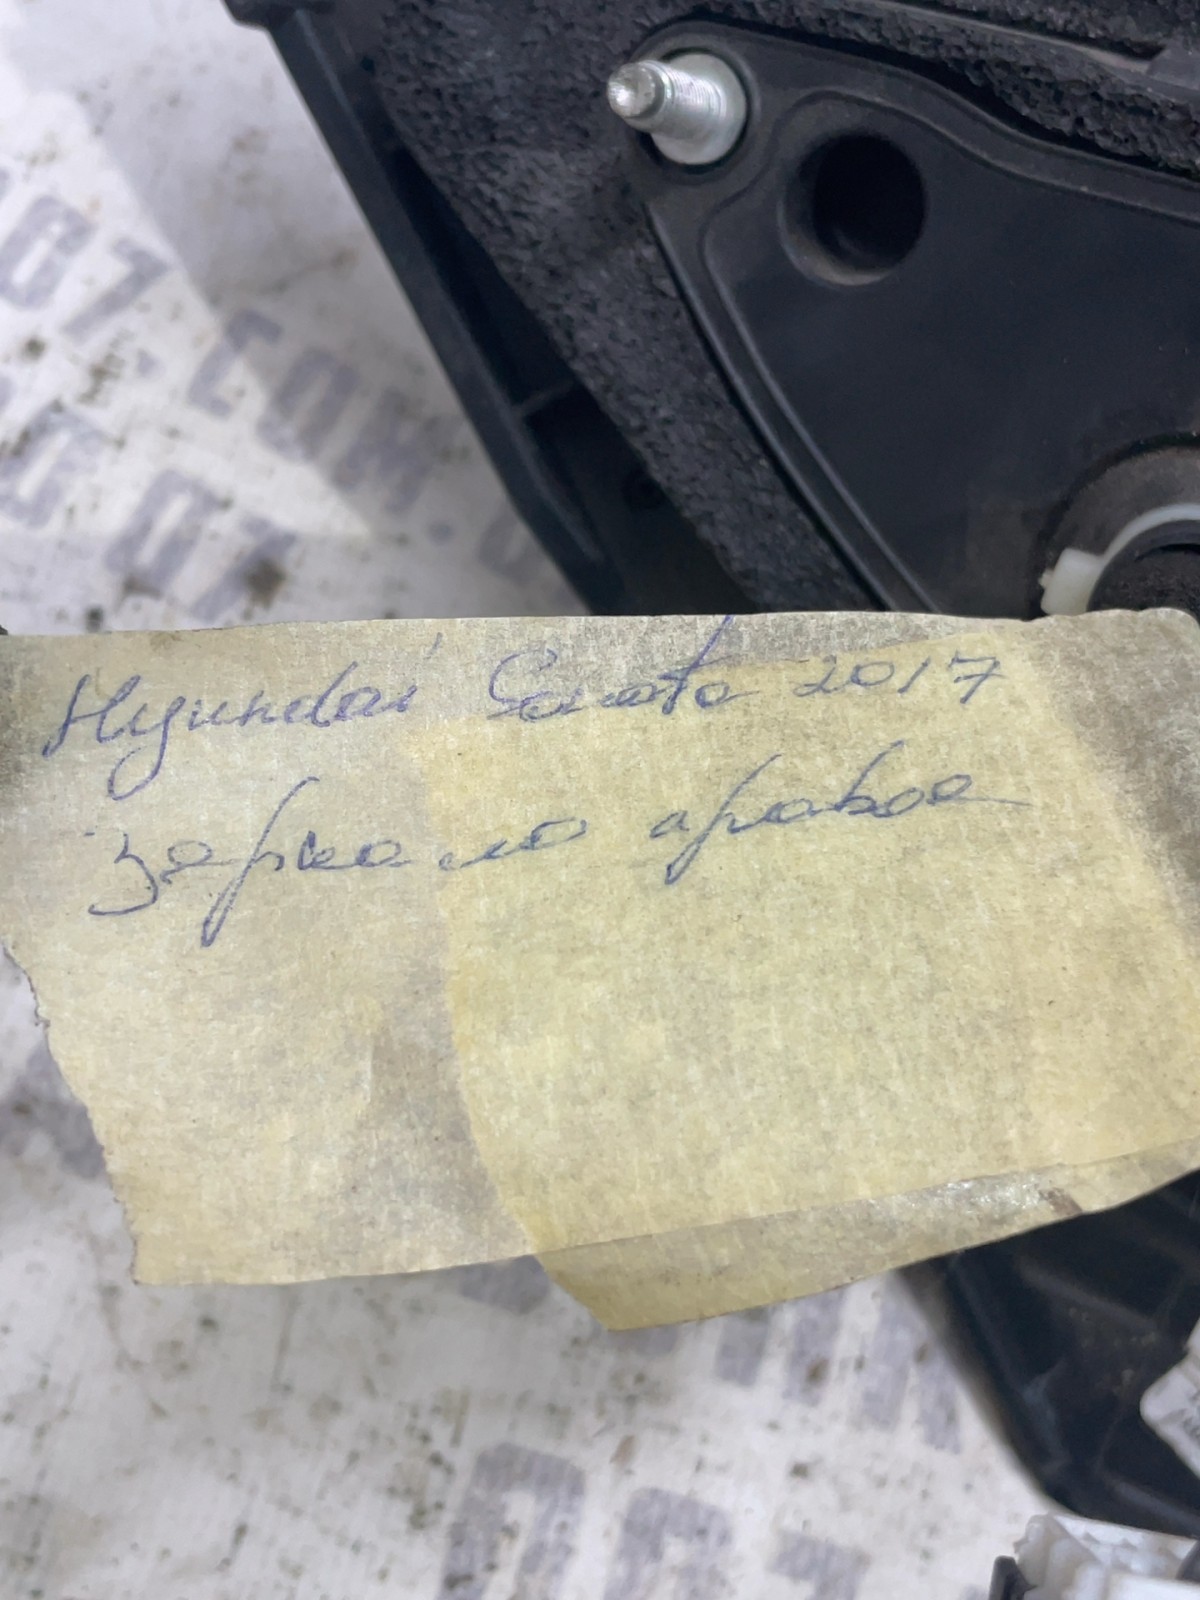 Hyundai Sonata 2017
Зеркало правое